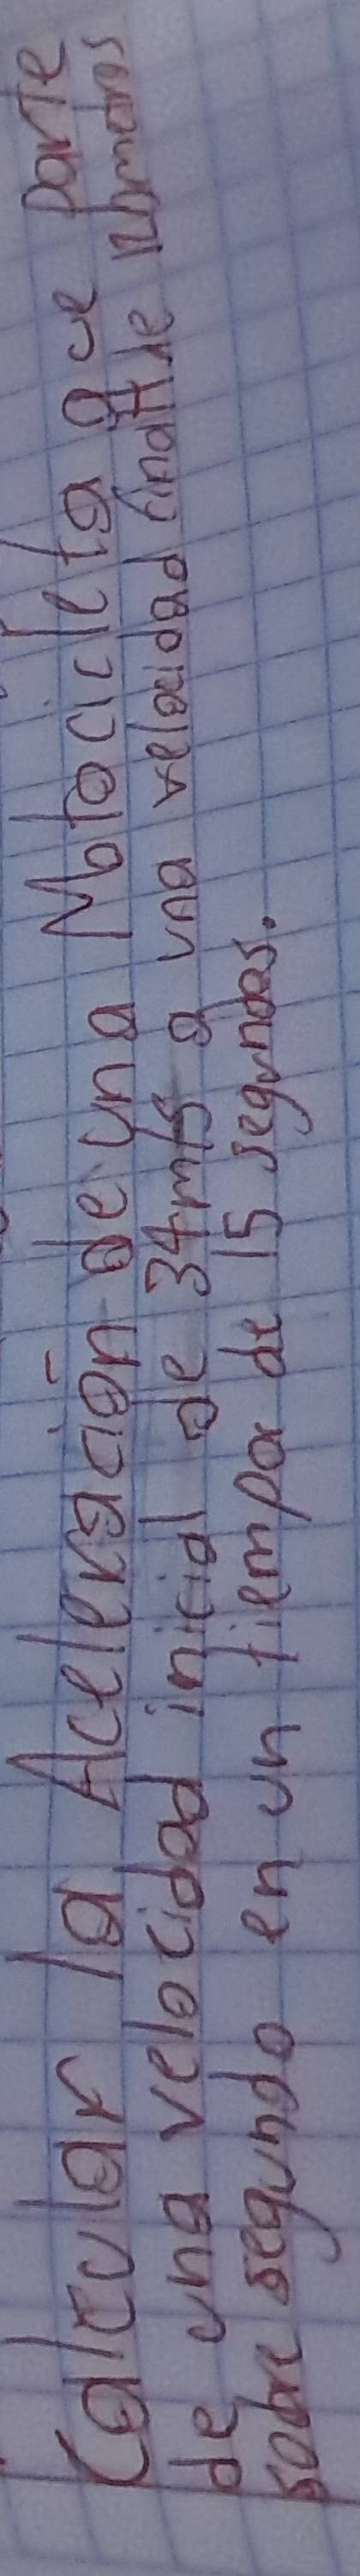 Calcular la Aceleración de una Motocicleta que parte
de una velocidad inicial de 34m/s a una velocidad
sobre segundo en un tiempo de 15 segundos.